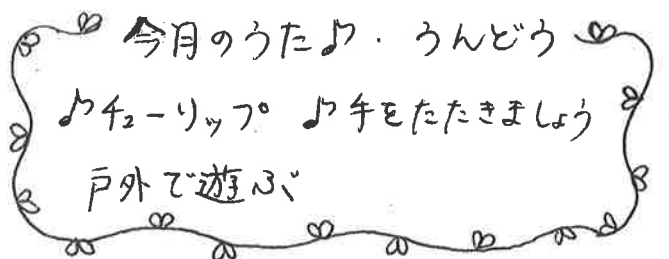 今月のうた♪・うんどう
♪チューリップ ♪手をたたきましょう
戸外で遊ぶ